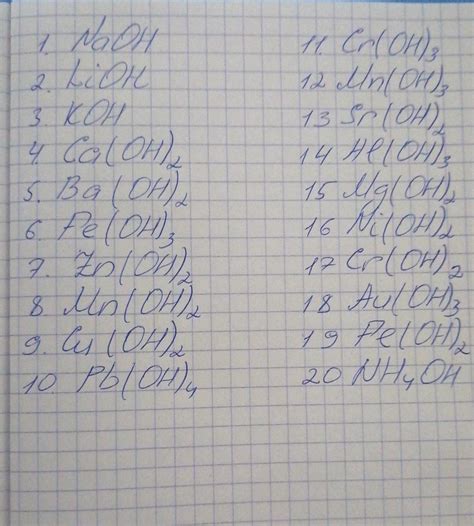 1. NaOH
2. LiOH
3. KOH
4 Ca(OH)₂
5. Ba(OH)₂
6. Fe(OH)₃
7. Zn(OH)₂
8. Mn(OH)₂
9. Cu(OH)₂
10. Pb(OH)₄
11. Cr(OH)₃
12 Mn(OH)₃
13 Sr(OH)₂
14 Al(OH)₃
15 Mg(OH)₂
16 Ni(OH)₂
17 Cr(OH)₂
18 Au(OH)₃
19 Fe(OH)₂
20 NH₄OH